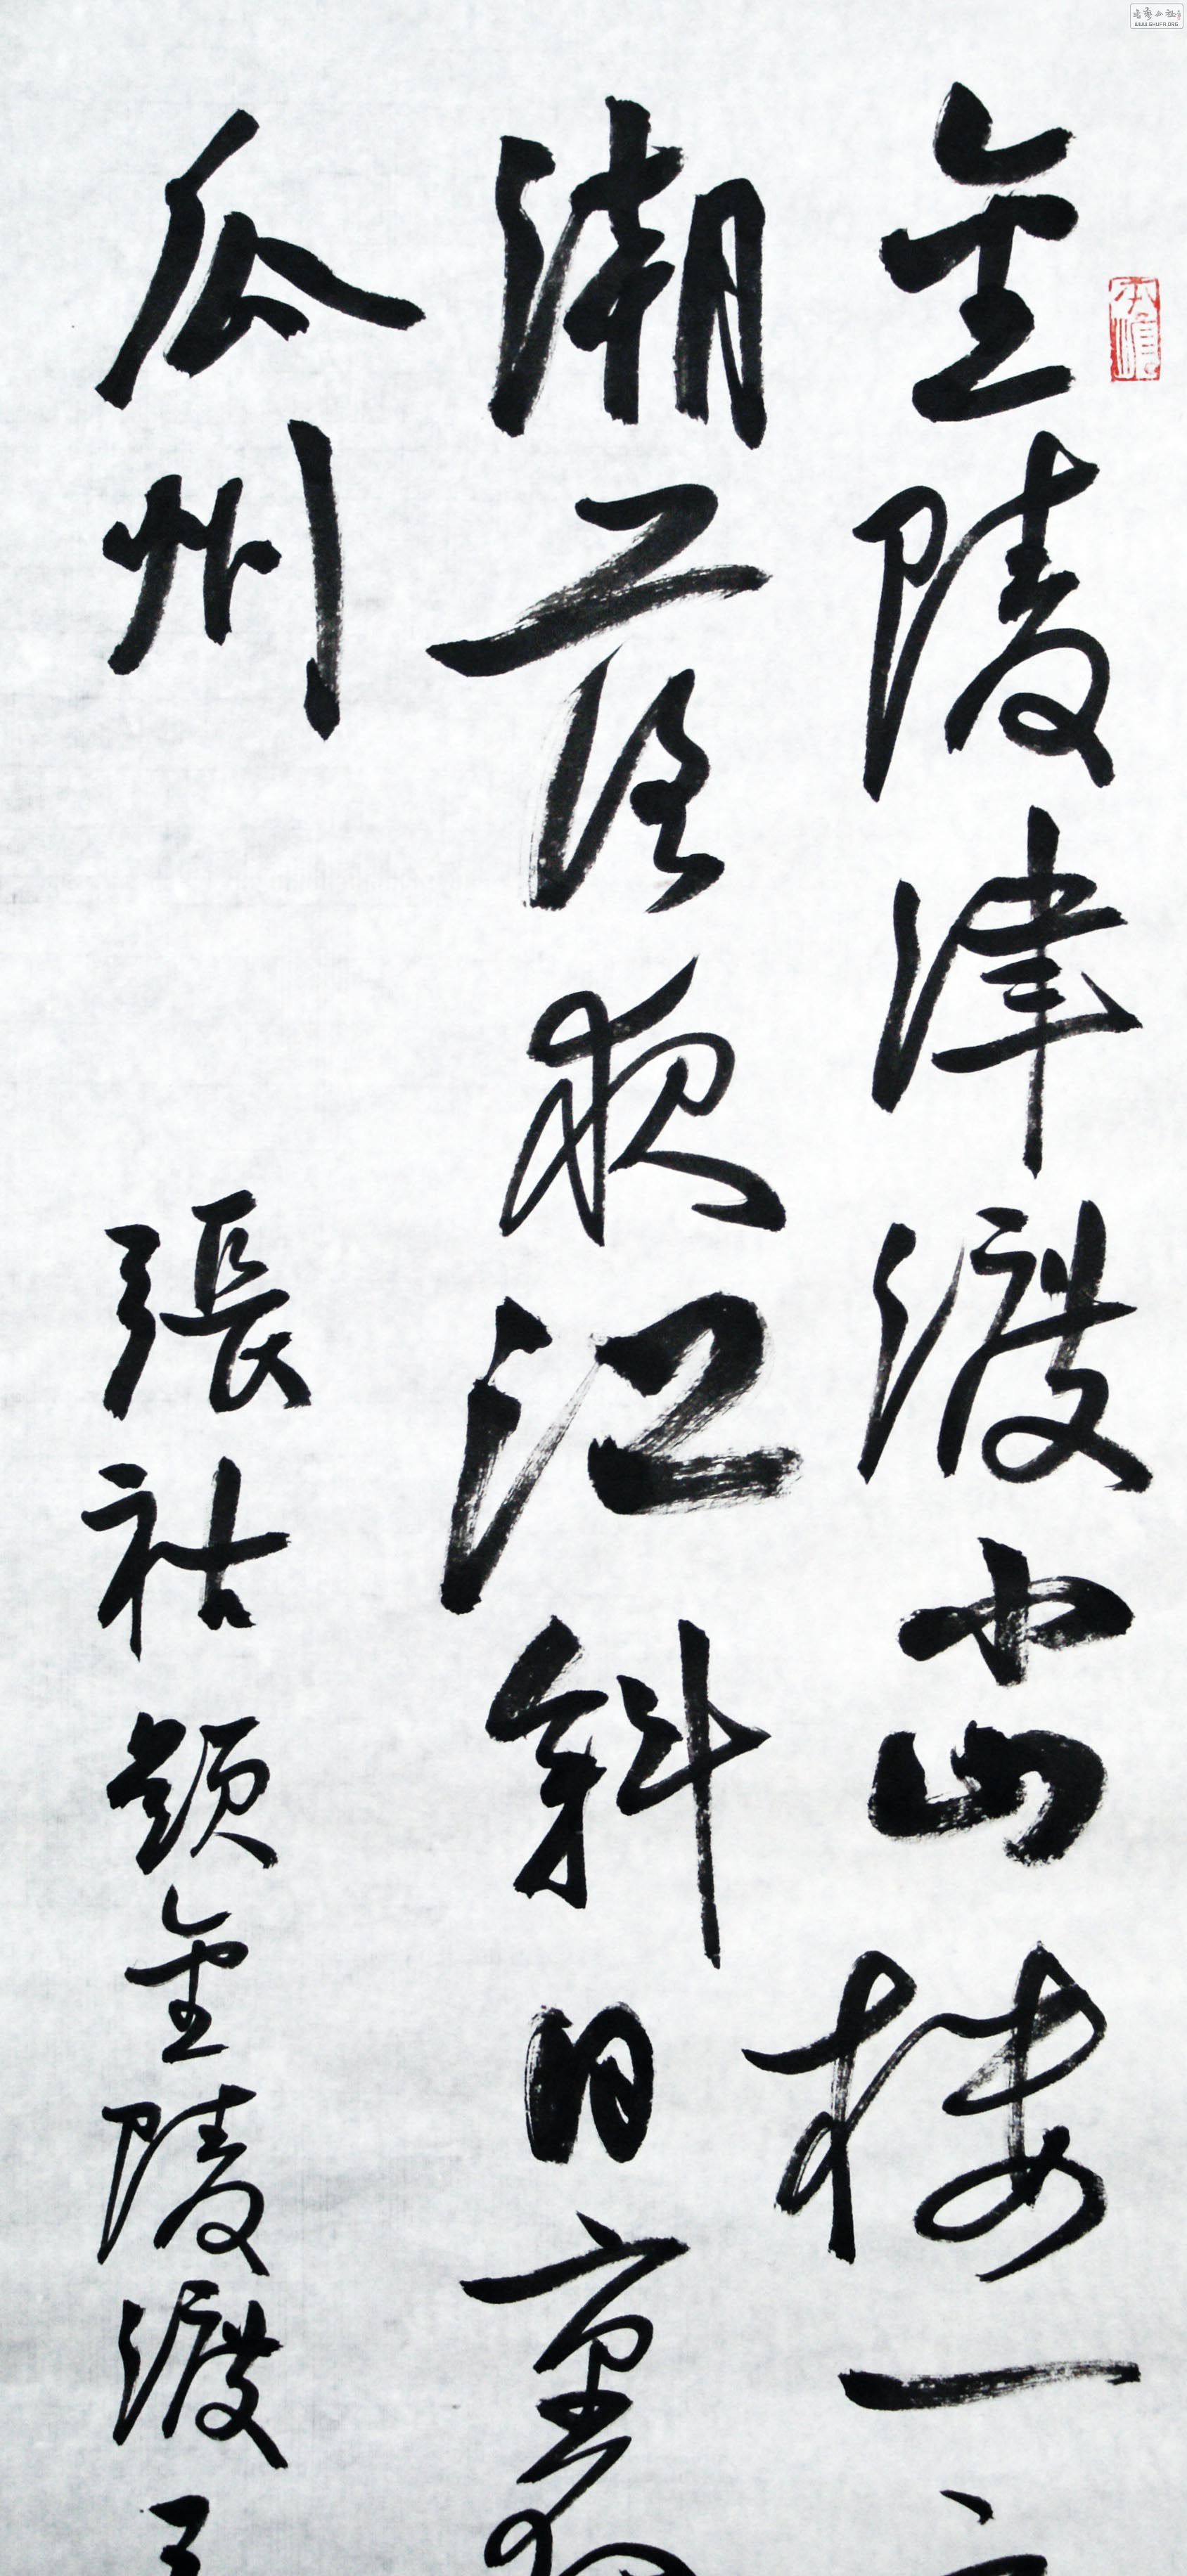 金陵津渡小山樓一
潮落夜江斜月裏
瓜州
張祜題金陵渡
WWW.SHUFA.ORG